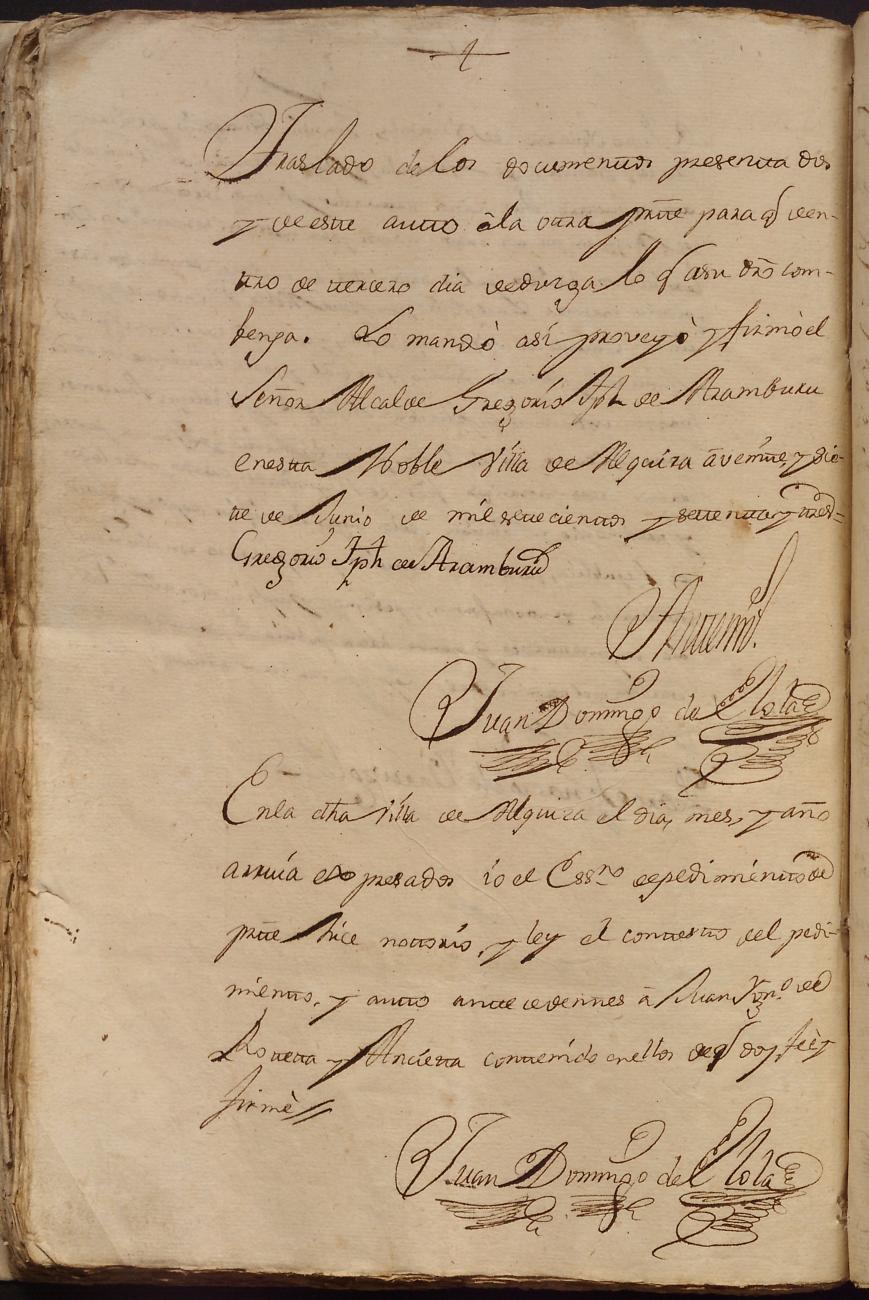 Traslado de los documentos presentados
y de este auto â la otra prte para q den-
tro de tercero dia deduzga lo q asu dro com-
benga. Lo mandò asi proveyò y firmò el
Señor Alcalde Gregorio Jph de Aramburu
enesta Noble Villa de Alquiza â veinte, y sie-
te de Junio de mil setecientos y setenta y tres=
Gregorio Jph de Aramburu
Antemi.
Juan Domingo de Elola
Enla dha Villa de Alquiza el dia, mes, y año
arriva expresados io el Essno de pedimiento de
prte hice notorio, y ley el contexto del pedi-
miento, y auto antecedentes â Juan Ygno de
Roteta y Ancieta contenido enellos de q doy feè y
firmè
Juan Domingo de Elola